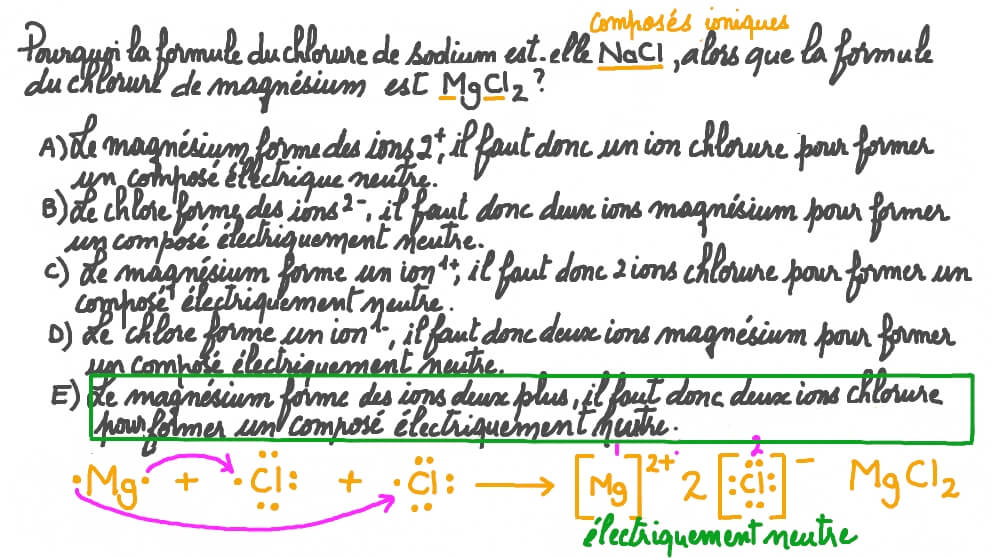 composés ioniques
Pourquoi la formule du chlorure de sodium est-elle NaCl, alors que la formule
du chlorure de magnésium est MgCl₂?
A) Le magnésium forme des ions 2+, il faut donc un ion chlorure pour former
un composé électrique neutre.
B) Le chlore forme des ions 2-, il faut donc deux ions magnésium pour former
un composé électriquement neutre.
C) Le magnésium forme un ion 1+, il faut donc 2 ions chlorure pour former un
composé électriquement neutre.
D) Le chlore forme un ion 1-, il faut donc deux ions magnésium pour former
un composé électriquement neutre.
E) Le magnésium forme des ions deux plus, il faut donc deux ions chlorure
pour former un composé électriquement neutre.
1 2
Mg + Cl + Cl → [Mg]²⁺ 2 [Cl]⁻ MgCl₂
électriquement neutre